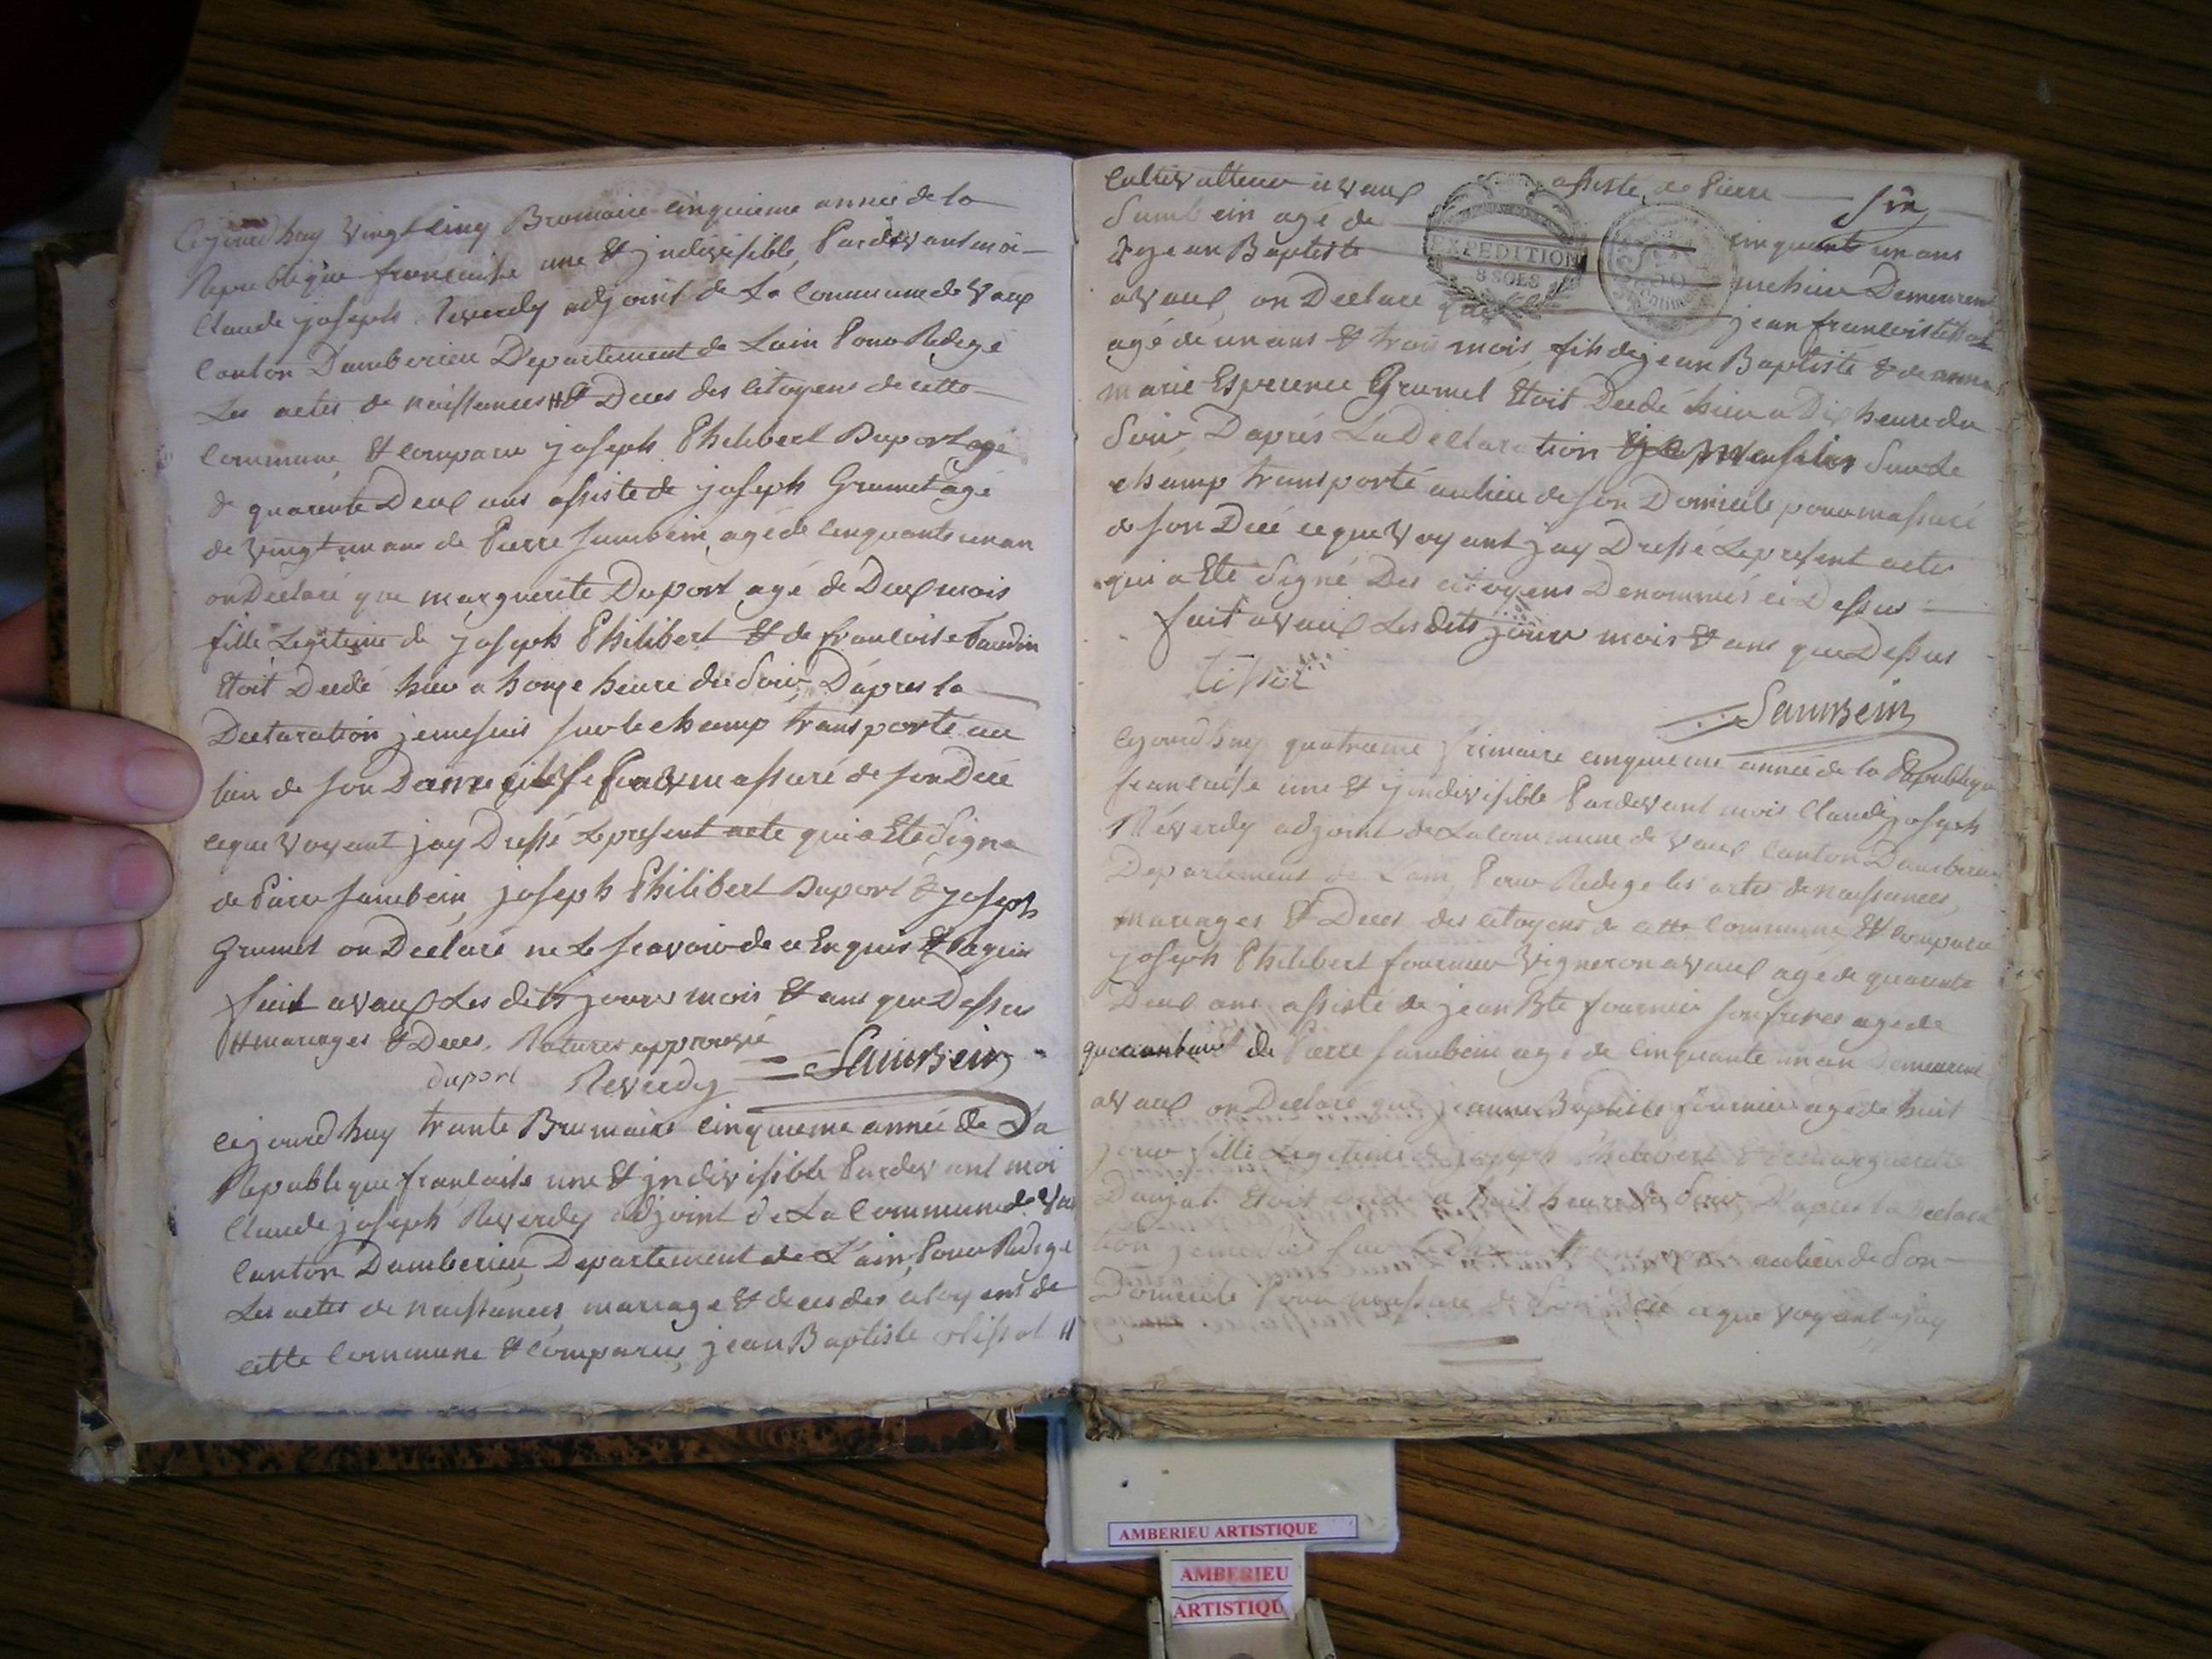 Cejourd huy vingt cinq Brumaire cinquieme année de la
Republique francaise une & jndivisible, Pardevant moi
Claude joseph Reverdy adjoint de La Commune de Vaux
Canton Damberieu Departement de Lain Pour Redege
Les actes de naissances # & Deces des Citoyens de cette
Commune & Comparu joseph Philibert Duport agé
de quarente Deux ans assiste de joseph Grumet agé
de vingt un ans de Pierre Sambein agé de Cinquante un an
on Declaré que marguerite Duport agé de Deux mois
fille Legiteme de joseph Philibert & de francoise
Etoit Decdé hier a honze heure du Soir, D'apres la
Declaration jemesuis sur le champ transporté au
lieu de son pour massuré de son Decé
ceque voyant jay Dressé Lepresent acte qui a Eté Signé
de Piere Sambein joseph Philibert Duport & joseph
Grumet on Declaré ne Le scavoir de ce Enquis & Requis
fait a Vaux Les dits jours mois & ans que Dessus
# mariages & Deces. approuvé
duport Reverdy Sambein
Cejourd huy trante Brumaire Cinquieme année de La
Republique francaise une & jndivisible Pardevant moi
Claude joseph Reverdy adjoint de La Commune de
Canton Damberieu, Departement de L'ain, Pour Redege
Les actes de naissances, mariage & deces des citoyens de
cette Commune & Comparu, jean Baptiste
Cultivatteur a Vaux assisté, de Pierre
Sambein agé de cinquante un ans
& jean Baptiste Demeurent
EXPEDITION
8 SOLS
a Vaux, on Declare que jean francois
agé de un ans & trois mois, fils de jean Baptiste & de anne
marie Esperence Grumel Etoit Decdé hier a Dix heure du
Soir D'aprés La Declaration Sur le
champ transporté aulieu de son Domicile pour massuré
de son Decé ceque Voyant jay Dressé Lepresent acte
qui a Eté Signé Des citoyens Denommés ci Dessus
fait a Vaux Les dits jour mois & ans que Dessus
Sambein
Cejourd huy quatrieme frimaire cinquieme année de la Republique
francaise une & jindivisible Pardevant mois Claude joseph
Réverdy adjoint de La Commune de Vaux Canton Damberieu
Departement de Lain, Pour Redege les actes de naissances,
mariages & Deces des citoyens de cette Commune, & Comparu
joseph Philibert fournier Vigneron a Vaux agé de quarente
Deux ans assisté de jean Bte fournier son freres agé de
de Pierre Sambein agé de Cinquante un an Demeurent
a Vaux on Declaré que jeanne Baptiste fournier agé de huit
jour fille Legeteme de joseph Philibert & de marguerite
Etoit Decdé a huit heure du Soir, D'apres la Declara
tion jemesuis sur aulieu de Son
Domicile Pour massure de Son Decé ceque voyant jay
AMBERIEU ARTISTIQUE
AMBERIEU
ARTISTIQU